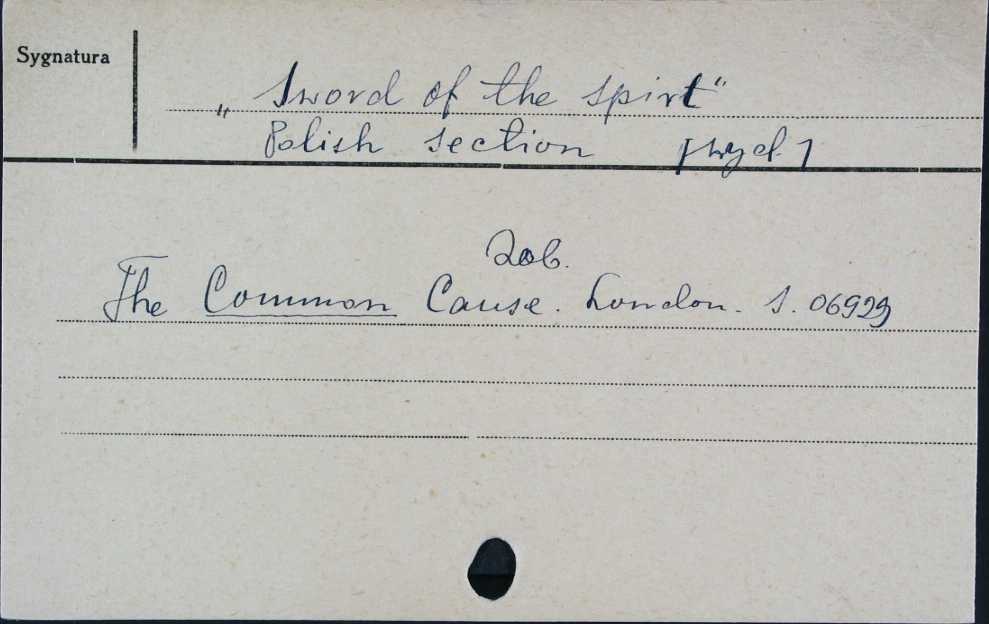 Sygnatura
„Sword of the spirt"
Polish section [wyd.]
Zob.
The Common Cause. London. S. 06929